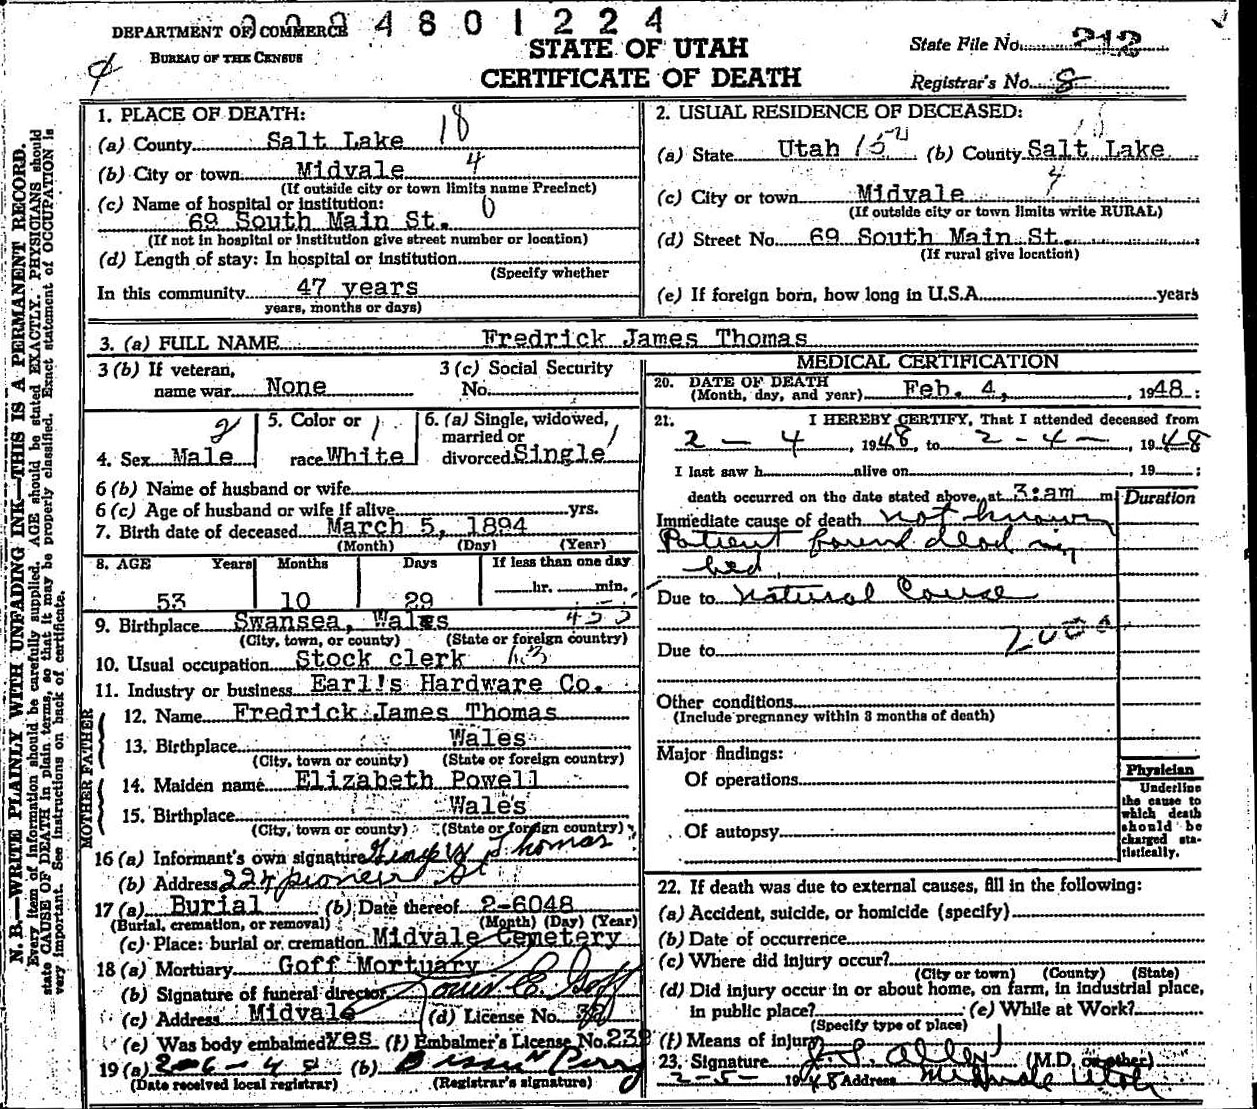 DEPARTMENT OF COMMERCE
BUREAU OF THE CENSUS
4 8 0 1 2 2 4
STATE OF UTAH
CERTIFICATE OF DEATH
State File No. 212
Registrar's No. 8
N. B.—WRITE PLAINLY WITH UNFADING INK—THIS IS A PERMANENT RECORD.
Every item of information should be carefully supplied. AGE should be stated EXACTLY. PHYSICIANS should
state CAUSE OF DEATH in plain terms, so that it may be properly classified. Exact statement of OCCUPATION is
very important. See instructions on back of certificate.
1. PLACE OF DEATH: 18
(a) County Salt Lake
(b) City or town Midvale 4
(If outside city or town limits name Precinct)
(c) Name of hospital or institution: 0
69 South Main St.
(If not in hospital or institution give street number or location)
(d) Length of stay: In hospital or institution
(Specify whether
In this community 47 years
years, months or days)
2. USUAL RESIDENCE OF DECEASED:
(a) State Utah (b) County Salt Lake
(c) City or town Midvale 4
(If outside city or town limits write RURAL)
(d) Street No. 69 South Main St.
(If rural give location)
(e) If foreign born, how long in U.S.A. years
3. (a) FULL NAME Fredrick James Thomas
3 (b) If veteran,
name war None
3 (c) Social Security
No.
4. Sex Male 2
5. Color or
race White 1
6. (a) Single, widowed,
married or
divorced Single 1
6 (b) Name of husband or wife
6 (c) Age of husband or wife if alive yrs.
7. Birth date of deceased March 5, 1894
(Month) (Day) (Year)
8. AGE Years Months Days If less than one day
53 10 29 hr. min.
9. Birthplace Swansea, Wales
(City, town, or county) (State or foreign country)
10. Usual occupation Stock clerk
11. Industry or business Earl's Hardware Co.
MOTHER FATHER
12. Name Fredrick James Thomas
13. Birthplace Wales
(City, town or county) (State or foreign country)
14. Maiden name Elizabeth Powell
15. Birthplace Wales
(City, town or county) (State or foreign country)
16 (a) Informant's own signature Thomas
(b) Address 224 pioneer St
17 (a) Burial (b) Date thereof 2-6048
(Burial, cremation, or removal) (Month) (Day) (Year)
(c) Place: burial or cremation Midvale Cemetery
18 (a) Mortuary Goff Mortuary
(b) Signature of funeral director E. Goff
(c) Address Midvale (d) License No. 32
(e) Was body embalmed? yes (f) Embalmer's License No. 239
19 (a) 2-6-48 (b)
(Date received local registrar) (Registrar's signature)
MEDICAL CERTIFICATION
20. DATE OF DEATH
(Month, day, and year) Feb. 4, , 1948 :
21. I HEREBY CERTIFY, That I attended deceased from
2 - 4 , 1948, to 2 - 4 - 1948
I last saw h alive on , 19 ;
death occurred on the date stated above, at 3:am m Duration
Immediate cause of death not known
Patient found dead in
bed
Due to natural Cause
Due to 2000
Other conditions
(Include pregnancy within 3 months of death)
Major findings:
Of operations
Of autopsy
Physician
Underline
the cause to
which death
should be
charged sta-
tistically.
22. If death was due to external causes, fill in the following:
(a) Accident, suicide, or homicide (specify)
(b) Date of occurrence
(c) Where did injury occur?
(City or town) (County) (State)
(d) Did injury occur in or about home, on farm, in industrial place,
in public place? (e) While at Work?
(Specify type of place)
(f) Means of injury
23. Signature (M.D. or other)
2-5- 1948 Address Midvale Utah